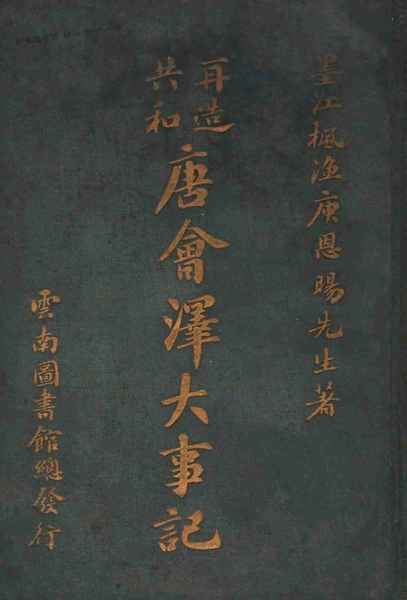 墨江楓漁庾恩暘先生著
再造共和
唐會澤大事記
雲南圖書館總發行